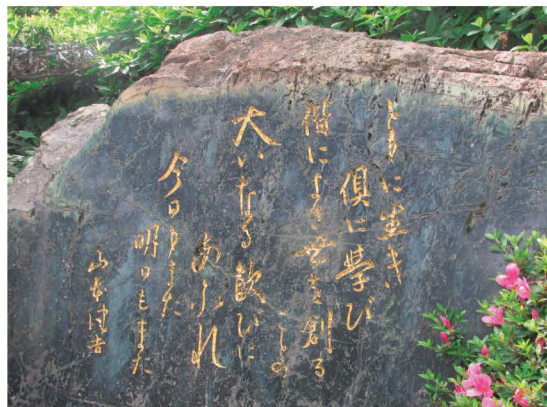 ともに生き
倶に学び
偕によき世を創る
この
大いなる歓びに
あふれ
今日もまた
明日もまた
山本